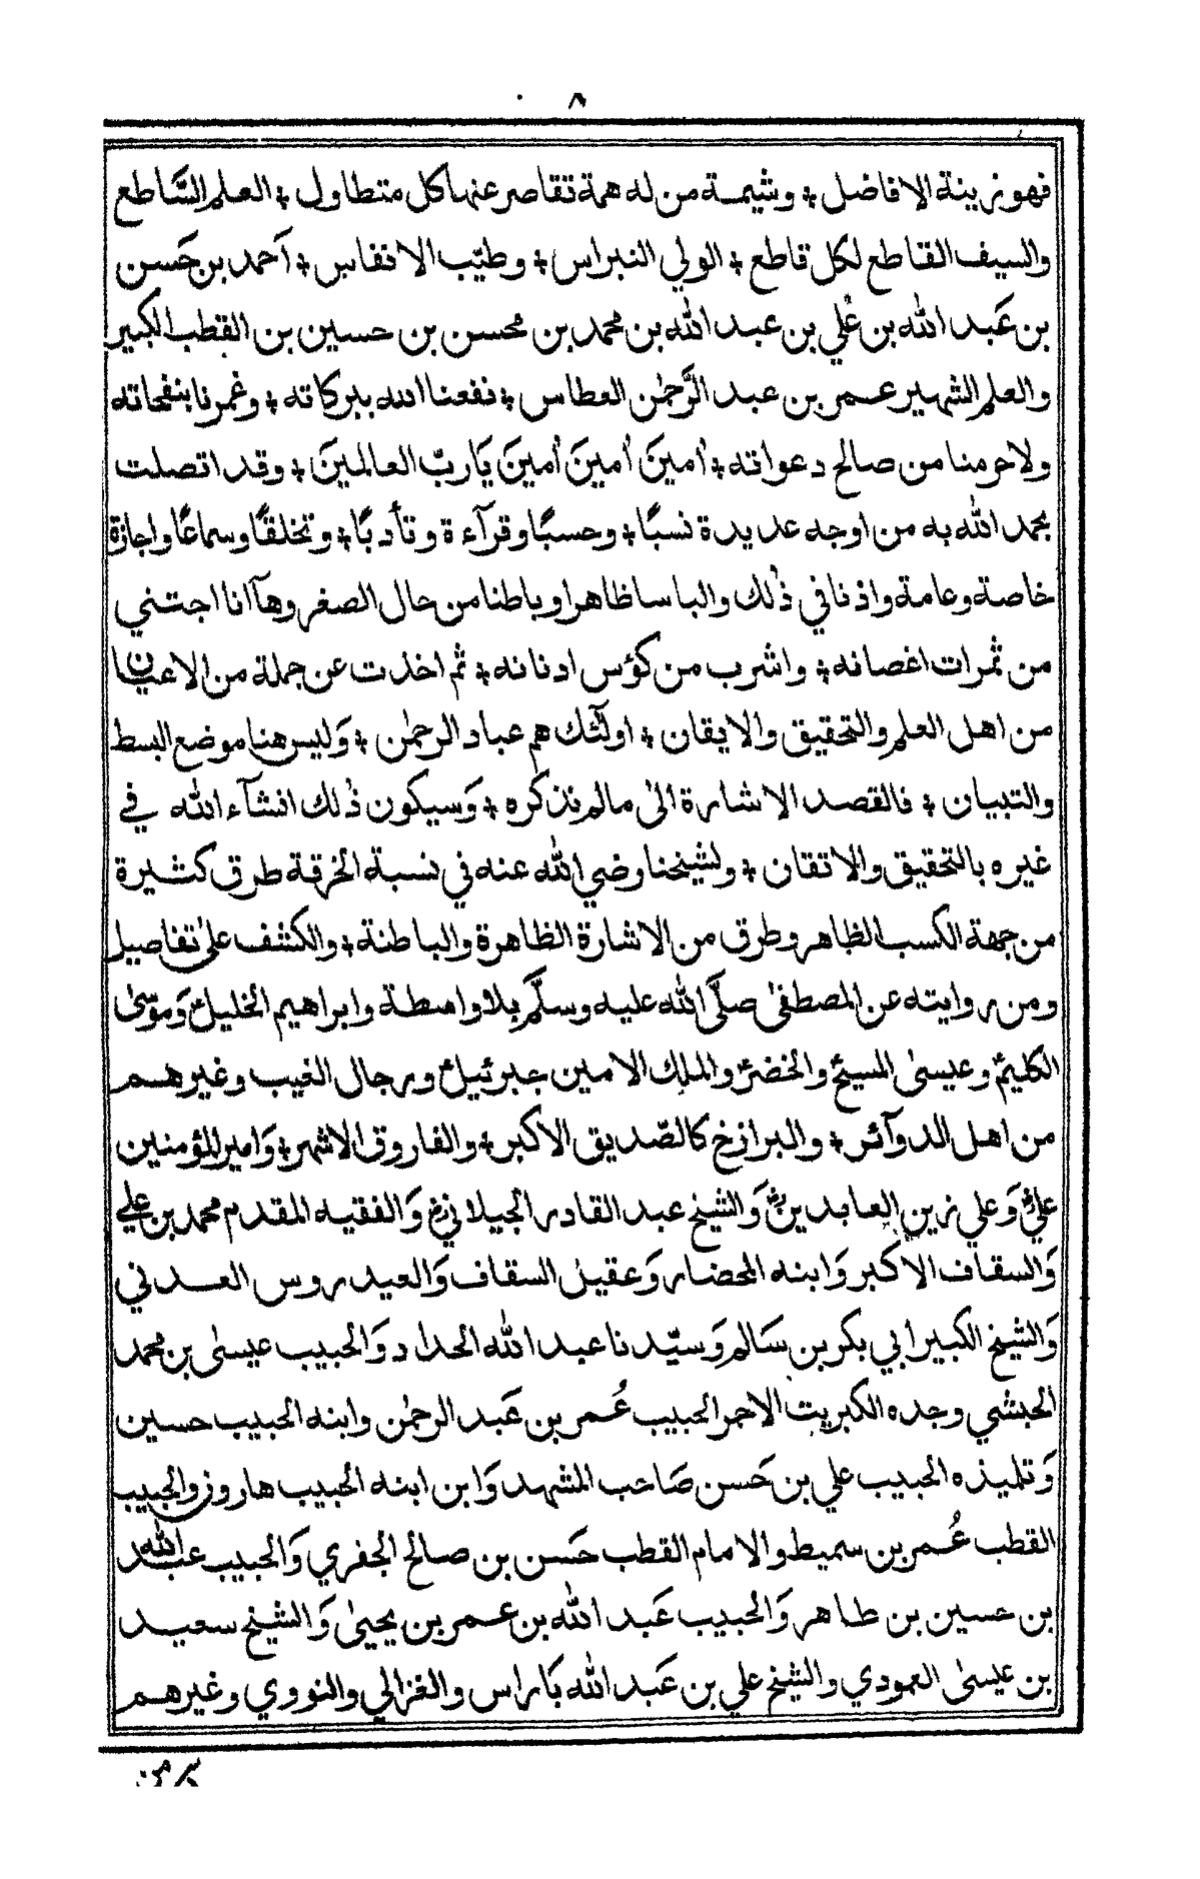 ٨
فهو زينة الافاضل ✢ وشيمة من له همة تقاصر عنها كل متطاول ✢ العلم السَّاطع
والسيف القاطع لكل قاطع ✢ الولي النبراس ✢ وطيّب الانفاس ✢ اَحمد بن حَسن
بن عَبد الله بن عُلي بن عبد الله بن محمد بن محسن بن حسين بن القطب الكبير
والعلم الشهير عمر بن عبد الرَّحمٰن العطاس ✢ نفعنا الله ببركاته ✢ وغمرنا بنفحاته
ولاحرمنا من صالح دعواته ✢ اٰمينَ اٰمينَ اٰمينَ يَاربّ العالمينَ ✢ وقد اتصلت
بحمد الله به من اوجه عديدة نسبًا ✢ وحسبًا وقرآءة وتأدبًا ✢ وتخلقًا وسماعًا واجازة
خاصة وعامة واذنا في ذٰلك والباسا ظاهرا وباطنا من حال الصغر وهآانا اجتني
من ثمرات اغصانه ✢ واشرب من كؤس ادنانه ✢ ثم اخذت عن جملة من الاعيان
من اهل العلم والتحقيق والايقان ✢ اولٓئك هم عباد الرحمٰن ✢ وَليس هنا موضع البسط
والتبيان ✢ فالقصد الاشارة الىٰ مالم نذكره ✢ وَسيكون ذٰلك انشآء الله في
غيره بالتحقيق والاتقان ✢ ولشيخنا رضي الله عنه في نسبة الخرقة طرق كثيرة
من جهة الكسب الظاهر وطرق من الاشارة الظاهرة والباطنة ✢ والكشف علىٰ تفاصيل
ومن روايته عن المصطفىٰ صلَّى الله عليه وسلَّم بِلا واسطة وابراهيم الخليلؑ وَموسىٰ
الكليمؑ وعيسىٰ المسيحؑ والخضرؑ والملك الامين جبرئيلؑ ورجال الغيب وغيرهم
من اهل الدوآئر ✢ والبرازخ كالصّديق الاكبر ✢ والفاروق الاشهر ✢ وَاميرالمؤمنين
عليؓ وَعلي زين العابدينؓ وَالشيخ عبد القادر الجيلانيؓ وَالفقيه المقدم محمد بن علي
وَالسقاف الاكبر وَابنه المحضار وَعقيل السقاف وَالعيدروس العدني
وَالشيخ الكبير ابي بكر بن سَالم وَسيّدنا عبد الله الحداد وَالحبيب عيسىٰ بن محمد
الحبشي وجده الكبريت الاحمر الحبيب عُمر بن عَبد الرحمٰن وابنه الحبيب حسين
وَتلميذه الحبيب علي بن حَسن صَاحب المشهد وَابن ابنه الحبيب هارون والحبيب
القطب عُمر بن سميط والامام القطب حَسن بن صالح الجفري وَالحبيب عبد الله
بن حسين بن طاهر وَالحبيب عَبد الله بن عمر بن يحيىٰ وَالشيخ سعيد
بن عيسىٰ العمودي والشيخ علي بن عَبد الله بَاراس والغزالي والنووي وغيرهم